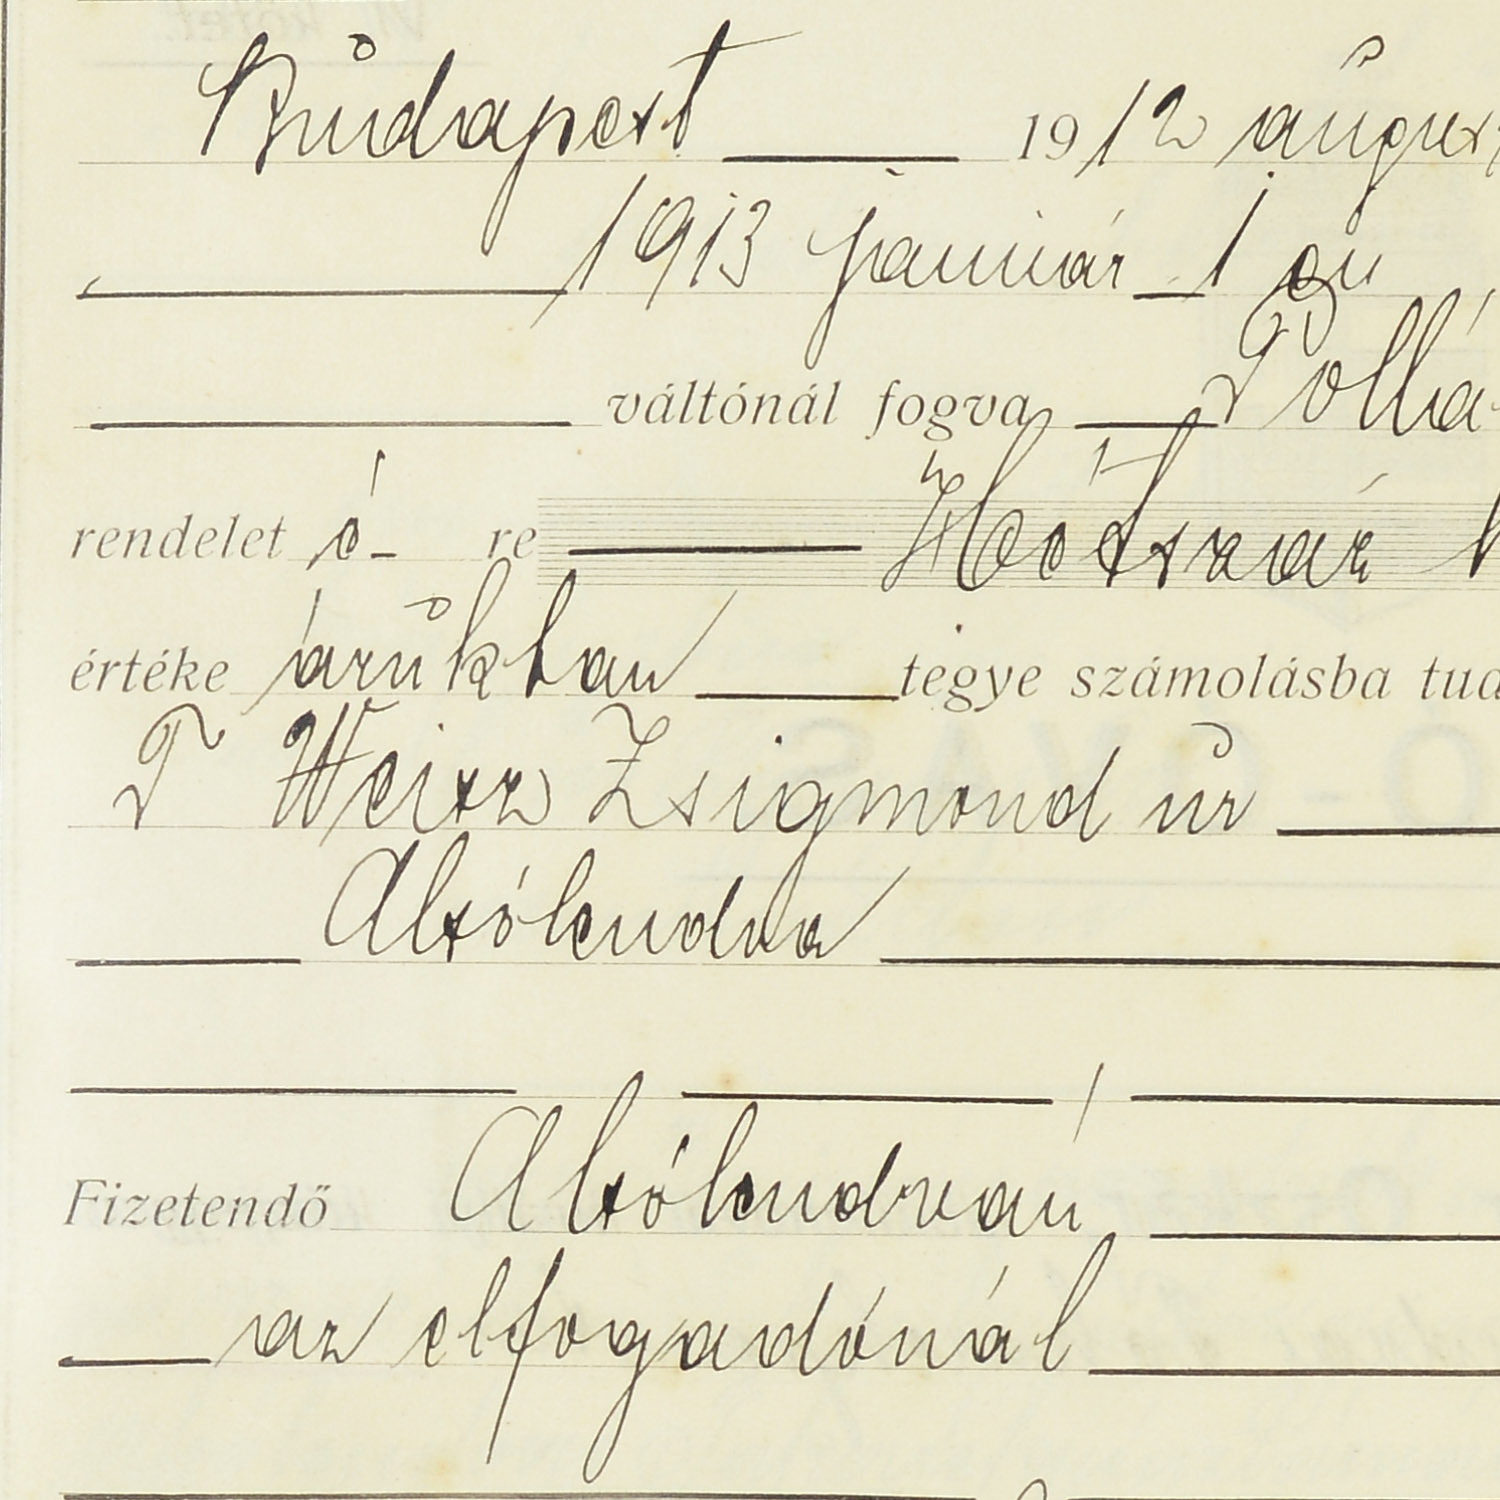 Budapest 1912 august
1913 január 1 én
váltónál fogva Pollá
rendelet ő re Hétszáz
értéke árukban tegye számolásba tud
T Weisz Zsigmond úr
Alsólendva
Fizetendő Alsólendván
az elfogadónál